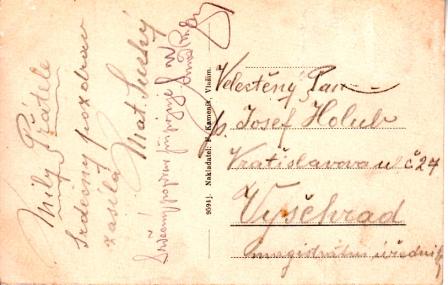 Milý Přátele
Srdečný pozdrav
zasílá
Mat. Suchý
Srdečný pozdrav připojuje
9594j. Nakladatel: F. Kameník, Vlašim.
Velectěný Pan
Josef Holub
Vratislavova ul č 27
Vyšehrad
magistrátní úředník